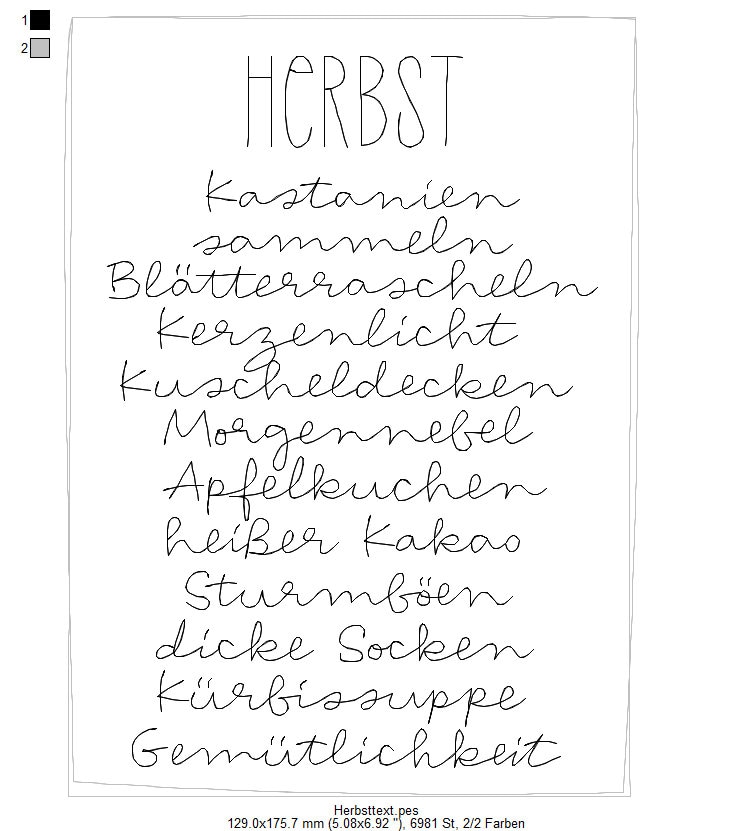 1
2
HERBST
Kastanien
sammeln
Blätterrascheln
Kerzenlicht
Kuscheldecken
Morgennebel
Apfelkuchen
heißer Kakao
Sturmböen
dicke Socken
Kürbissuppe
Gemütlichkeit
Herbsttext.pes
129.0x175.7 mm (5.08x6.92 "), 6981 St, 2/2 Farben